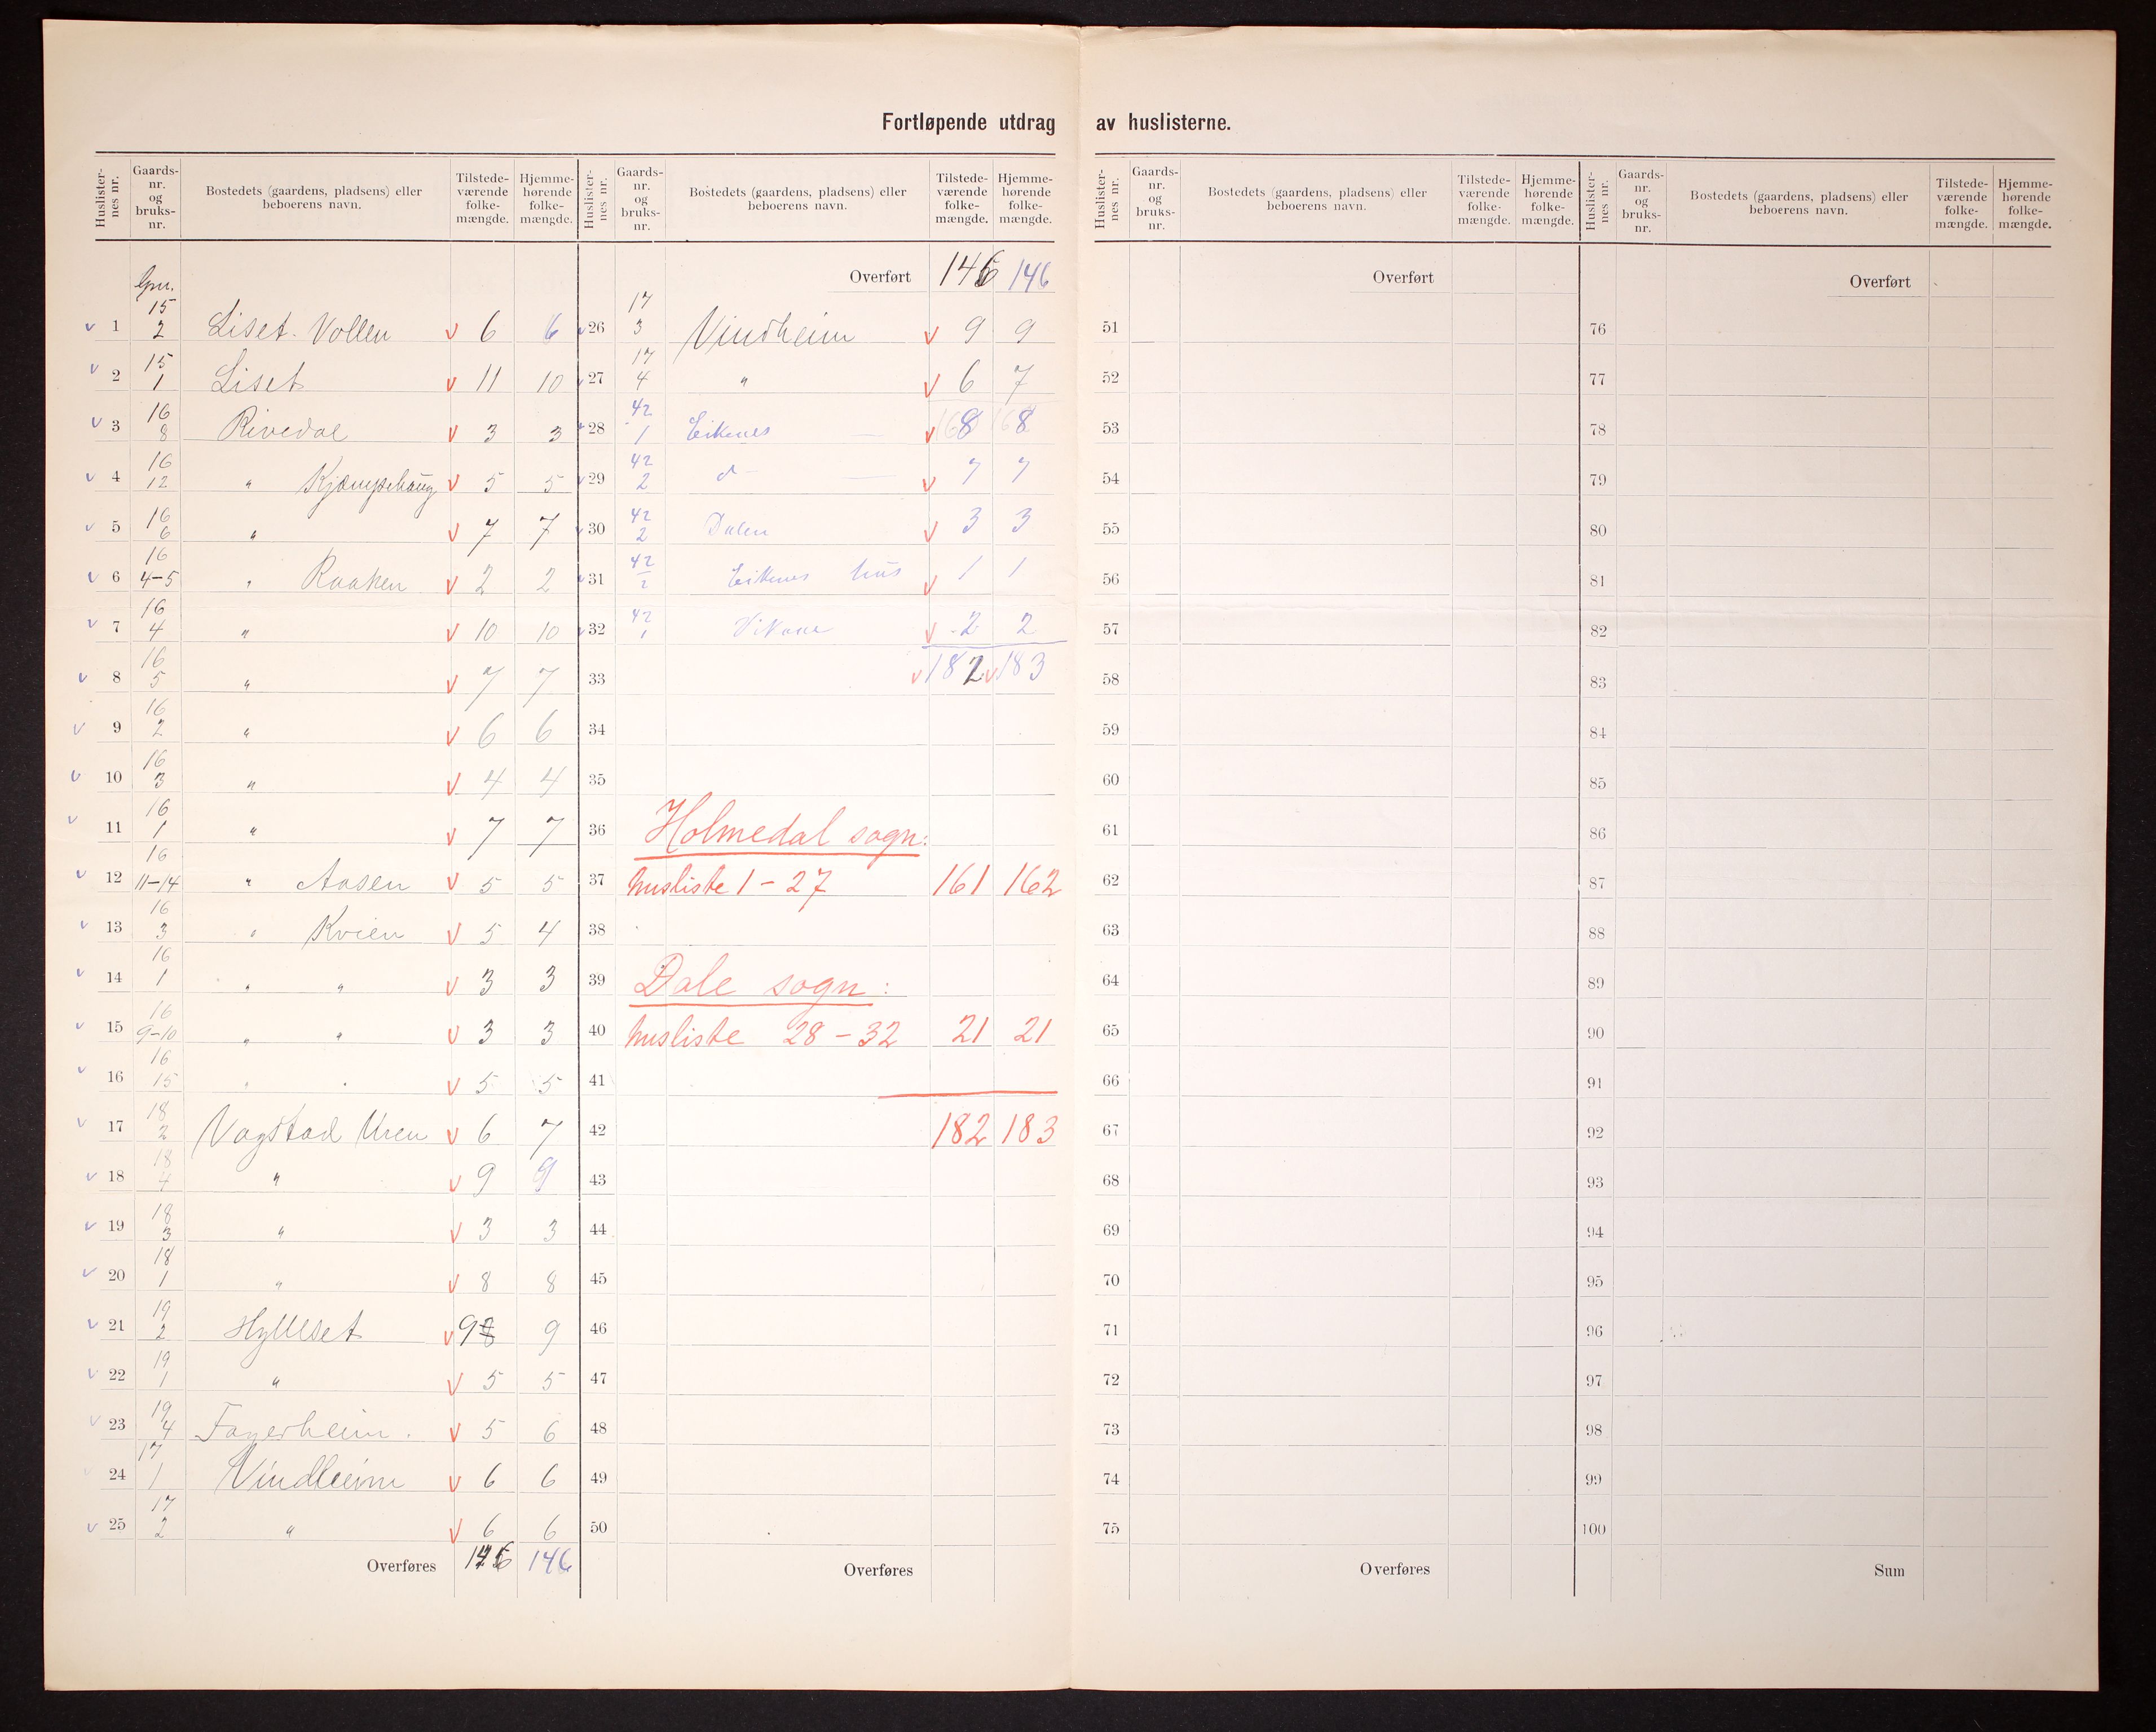 Fortløpende utdrag av huslisterne.
Huslister-nes nr. Gaards-nr. og bruks-nr. Bostedets (gaardens, pladsens) eller beboerens navn. Tilstede-værende folke-mængde. Hjemme-hørende folke-mængde.
Huslister-nes nr. Gaards-nr. og bruks-nr. Bostedets (gaardens, pladsens) eller beboerens navn. Tilstede-værende folke-mængde. Hjemme-hørende folke-mængde.
Huslister-nes nr. Gaards-nr. og bruks-nr. Bostedets (gaardens, pladsens) eller beboerens navn. Tilstede-værende folke-mængde. Hjemme-hørende folke-mængde.
Huslister-nes nr. Gaards-nr. og bruks-nr. Bostedets (gaardens, pladsens) eller beboerens navn. Tilstede-værende folke-mængde. Hjemme-hørende folke-mængde.
Gnr.
v 1 15 2 Liset. Vollen v 6 6
v 2 15 1 Liset v 11 10
v 3 16 8 Rivedal v 3 3
v 4 16 12 " Kjæmpehaug v 5 5
v 5 16 6 " v 7 7
v 6 16 4-5 " Raaken v 2 2
v 7 16 4 " v 10 10
v 8 16 5 " v 7 7
v 9 16 2 " v 6 6
v 10 16 3 " v 4 4
v 11 16 1 " v 7 7
v 12 16 11-14 " Aasen v 5 5
v 13 16 3 " Kvien v 5 4
v 14 16 1 " " v 3 3
v 15 16 9-10 " " v 3 3
v 16 16 15 " " v 5 5
v 17 18 2 Vagstad Uren v 6 7
v 18 18 4 " v 9 9
v 19 18 3 " v 3 3
v 20 18 1 " v 8 8
v 21 19 2 Hyllset v 9 8 9
v 22 19 1 " v 5 5
v 23 19 4 Fagerheim. v 5 6
v 24 17 1 Vindheim v 6 6
v 25 17 2 " v 6 6
Overføres 146 146
Overført 146 146
v 26 17 3 Vindheim v 9 9
v 27 17 4 " v 6 7
v 28 42 1 Eikenes v 8 8
v 29 42 2 d - v 7 7
v 30 42 2 Dalen v 3 3
v 31 42 2 Eikenes hus v 1 1
v 32 42 1 v 2 2
33 v 182 v 183
34
35
36 Holmedal sogn:
37 husliste 1-27 161 162
38
39 Dale sogn:
40 husliste 28-32 21 21
41
42 182 183
43
44
45
46
47
48
49
50
Overføres
Overført
51
52
53
54
55
56
57
58
59
60
61
62
63
64
65
66
67
68
69
70
71
72
73
74
75
Overføres
Overført
76
77
78
79
80
81
82
83
84
85
86
87
88
89
90
91
92
93
94
95
96
97
98
99
100
Sum